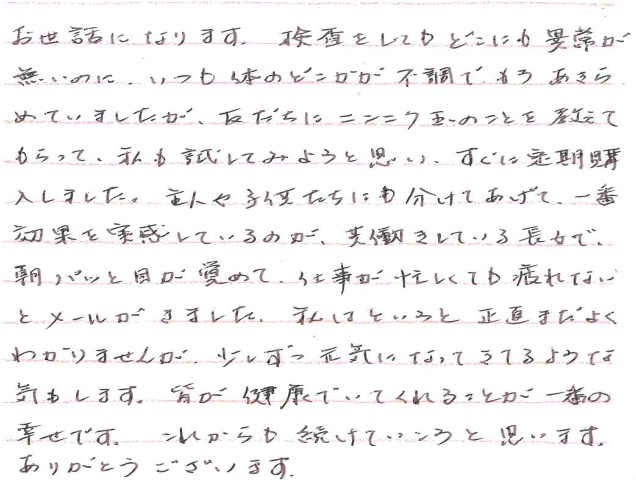 お世話になります。検査をしてもどこにも異常が
無いのに、いつも体のどこかが不調でもうあきら
めていましたが、友だちにニンニク玉のことを教えて
もらって、私も試してみようと思い、すぐに定期購
入しました。主人や子供たちにも分けてあげて、一番
効果を実感しているのが、共働きしている長女で、
朝パッと目が覚めて、仕事が忙しくても疲れない
とメールがきました。私はというと正直まだよく
わかりませんが、少しずつ元気になってきてるような
気もします。皆が健康でいてくれることが一番の
幸せです。これからも続けていこうと思います。
ありがとうございます。